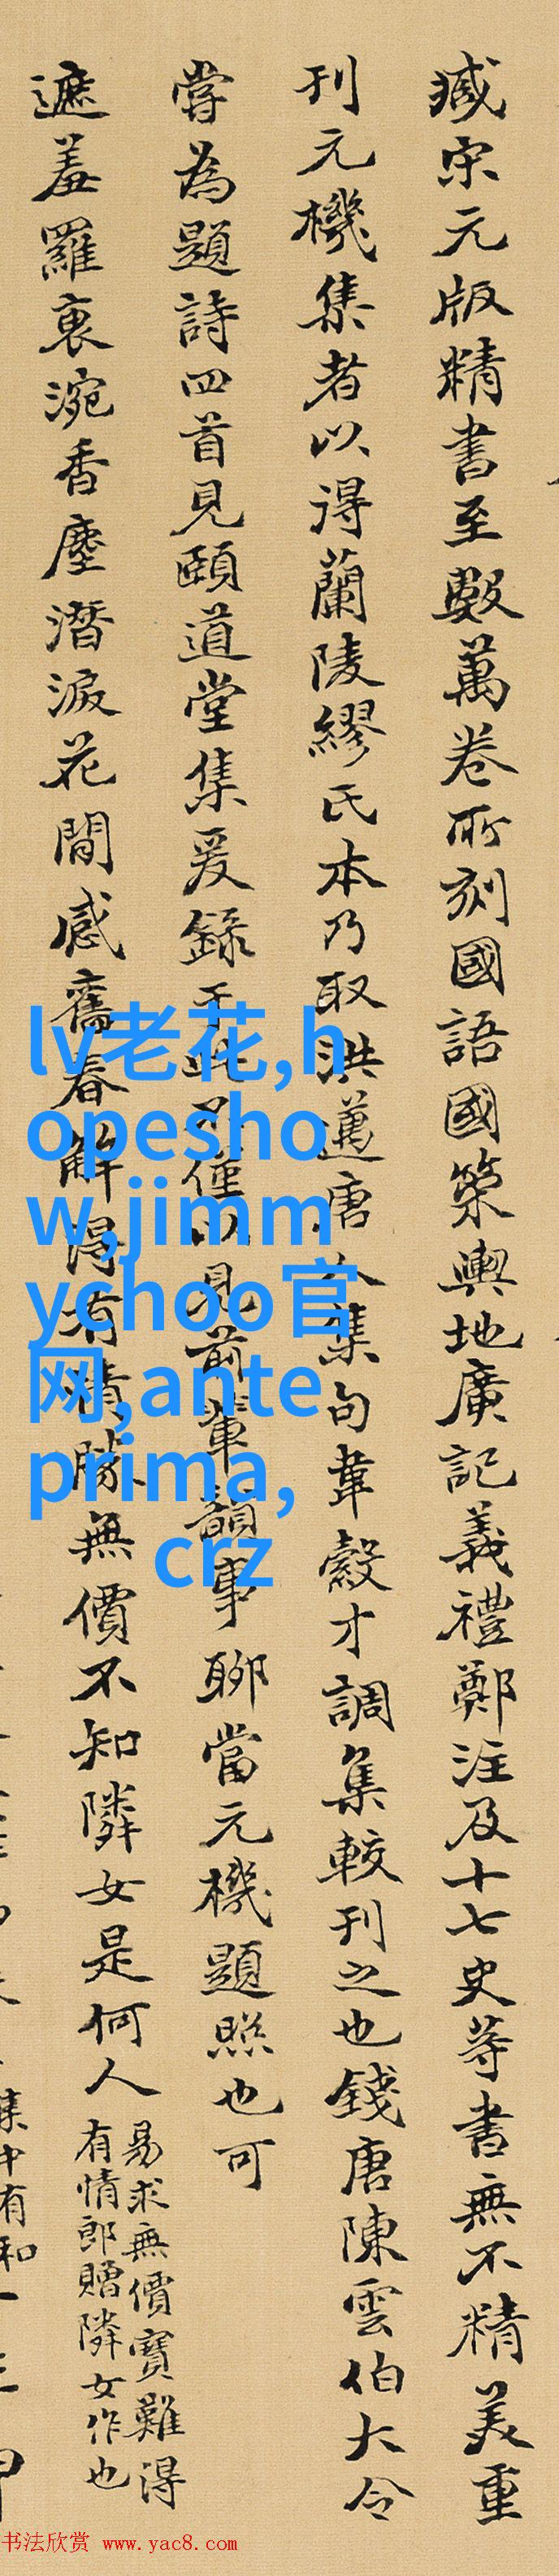 臧宋元版精書至數萬卷所刻國語國策輿地廣記義禮鄭注及十七史等書無不精美重
刊元機集者以得蘭陵繆氏本乃取洪邁唐人集句韋縠才調集較刊之也錢唐陳雲伯大令
嘗為題詩四首見頤道堂集爰錄于此不僅以見前輩韻事聊當元機題照也可
遮羞羅裏涴香塵潛淚花間感舊春解得有情勝無價不知隣女是何人
易求無價寶難得
有情郎贈隣女作也
集中有和
lv老花,h
opesho
w,jimm
ychoo官
网,ante
prima,
crz
书法欣赏 www.yac8.com